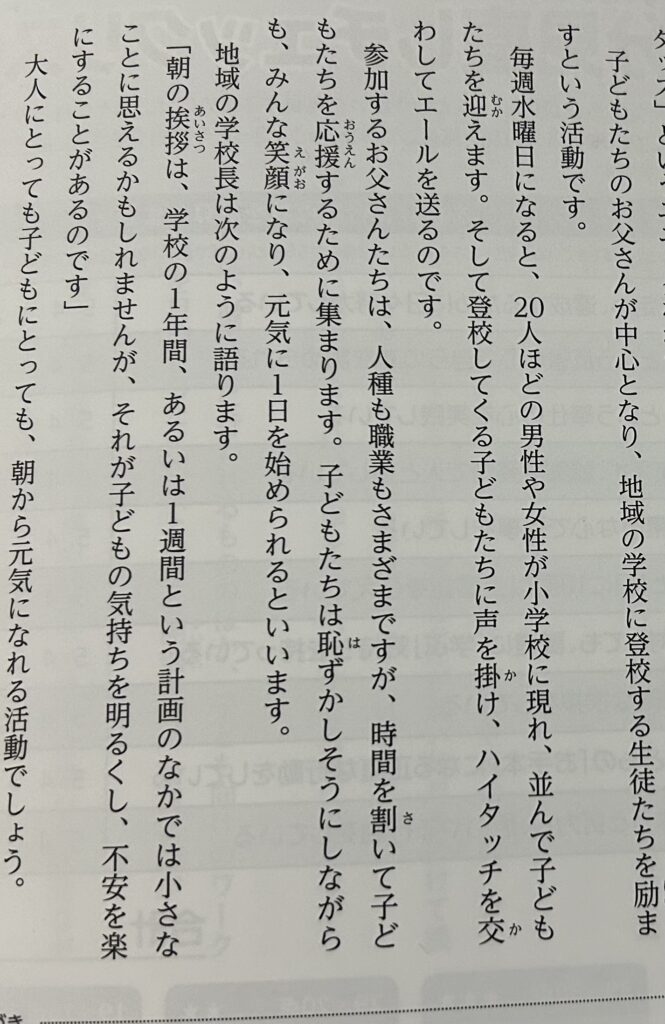 子どもたちのお父さんが中心となり、地域の学校に登校する生徒たちを励ま
すという活動です。
毎週水曜日になると、20人ほどの男性や女性が小学校に現れ、並んで子ども
たちを迎えます。そして登校してくる子どもたちに声を掛け、ハイタッチを交
わしてエールを送るのです。
参加するお父さんたちは、人種も職業もさまざまですが、時間を割いて子ど
もたちを応援するために集まります。子どもたちは恥ずかしそうにしながら
も、みんな笑顔になり、元気に1日を始められるといいます。
地域の学校長は次のように語ります。
「朝の挨拶は、学校の1年間、あるいは1週間という計画のなかでは小さな
ことに思えるかもしれませんが、それが子どもの気持ちを明るくし、不安を楽
にすることがあるのです」
大人にとっても子どもにとっても、朝から元気になれる活動でしょう。